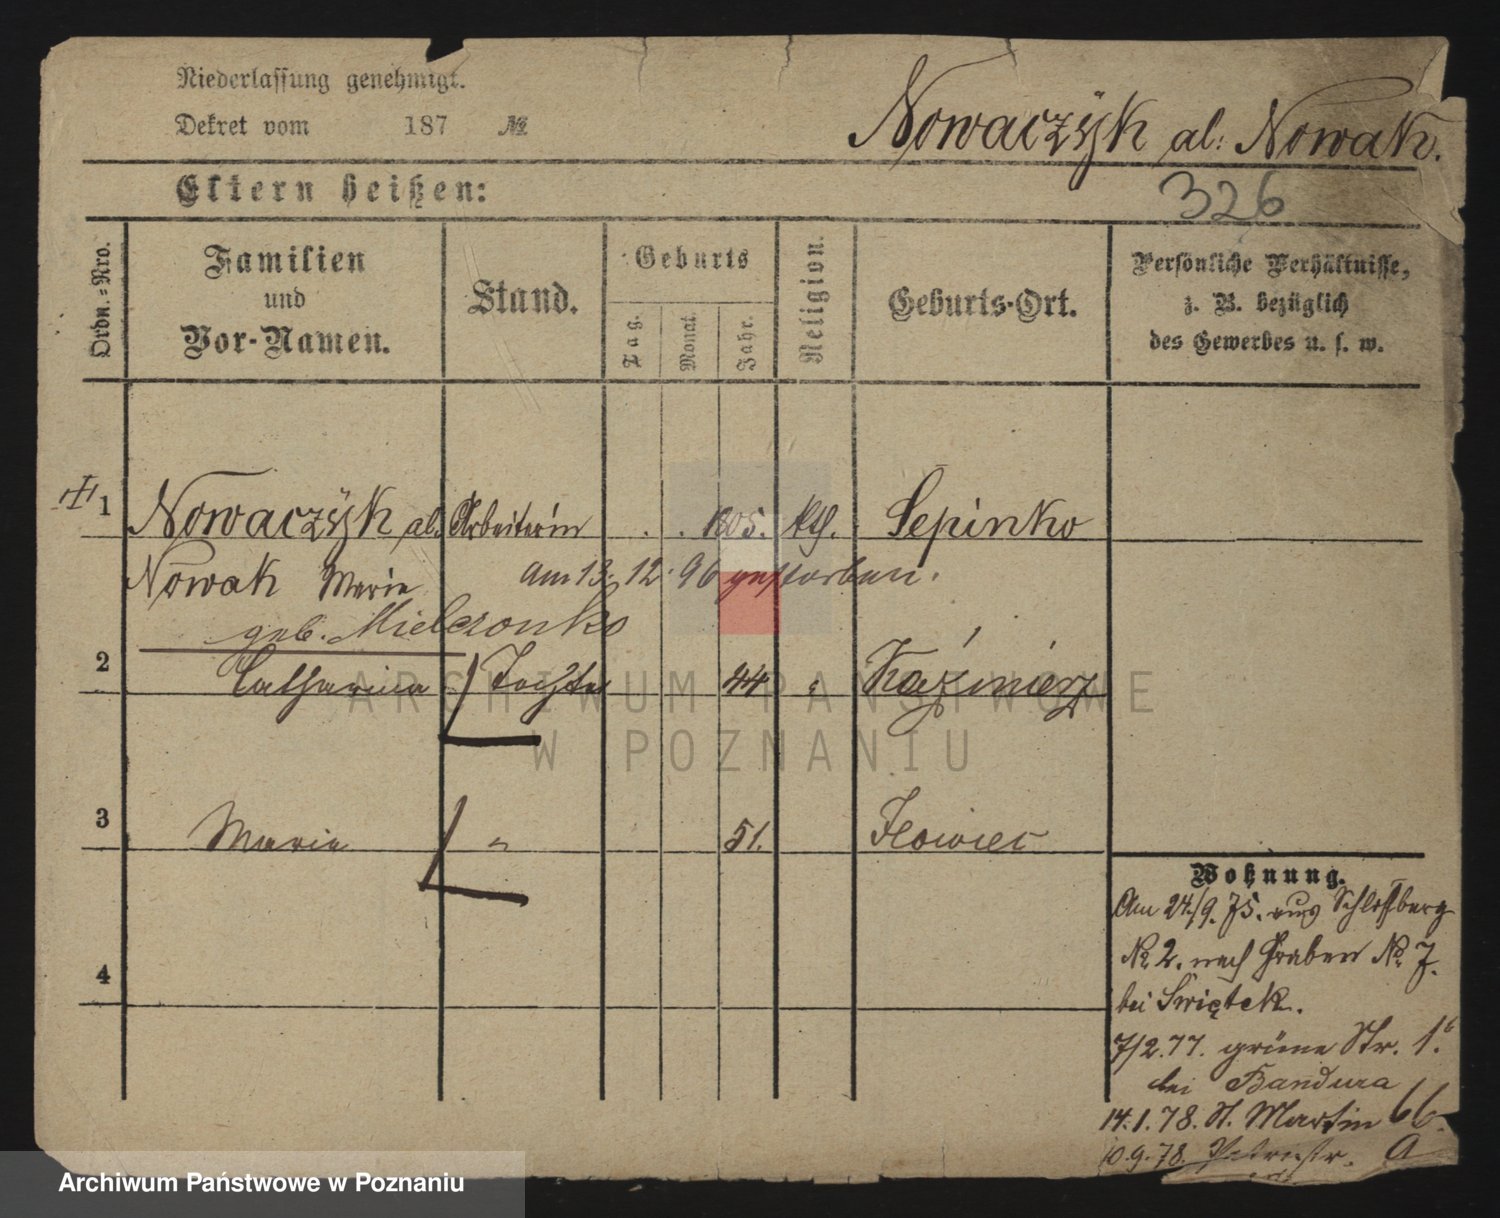 Niederlassung genehmigt.
Dekret vom 187 №
Nowaczÿk al: Nowak.
Eltern heißen:
326
Ordn.-Nro.
Familien und Vor-Namen.
Stand.
Geburts
Tag.
Monat.
Jahr.
Religion.
Geburts-Ort.
Persönliche Verhältnisse,
z. B. bezüglich
des Gewerbes u. s. w.
1 Nowaczÿk al. Arbeiterin . . 805. kth. Sepinko
Nowak Marie am 13. 12. 96 gestorben.
geb. Mielczonko
2 Catharina Tochter 44 Kaźmierz
3 Marie " 51.
4
Wohnung.
Am 24./9. 75. aus Schloßberg
№ 2. nach Graben № 7.
bei Swiętek.
7/2.77. grüne Str. 1.
bei Bandura
14.1.78. St. Martin 66.
10.9.78.
ARCHIWUM PAŃSTWOWE
W POZNANIU
Archiwum Państwowe w Poznaniu